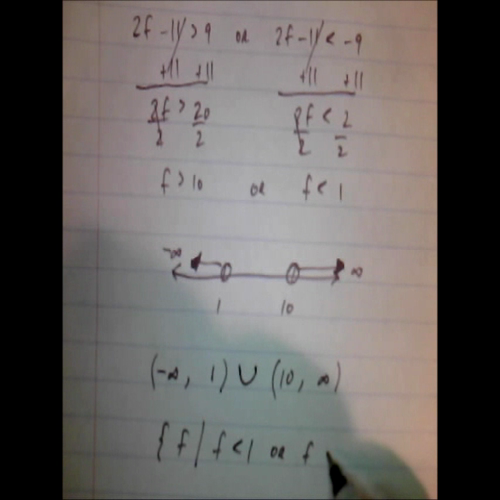 2f - 11 > 9 or 2f - 11 < -9
+11 +11 +11 +11
2f > 20 2f < 2
2 2 2 2
f > 10 or f < 1
-∞ ∞
1 10
(-∞, 1) ∪ (10, ∞)
{ f | f < 1 or f